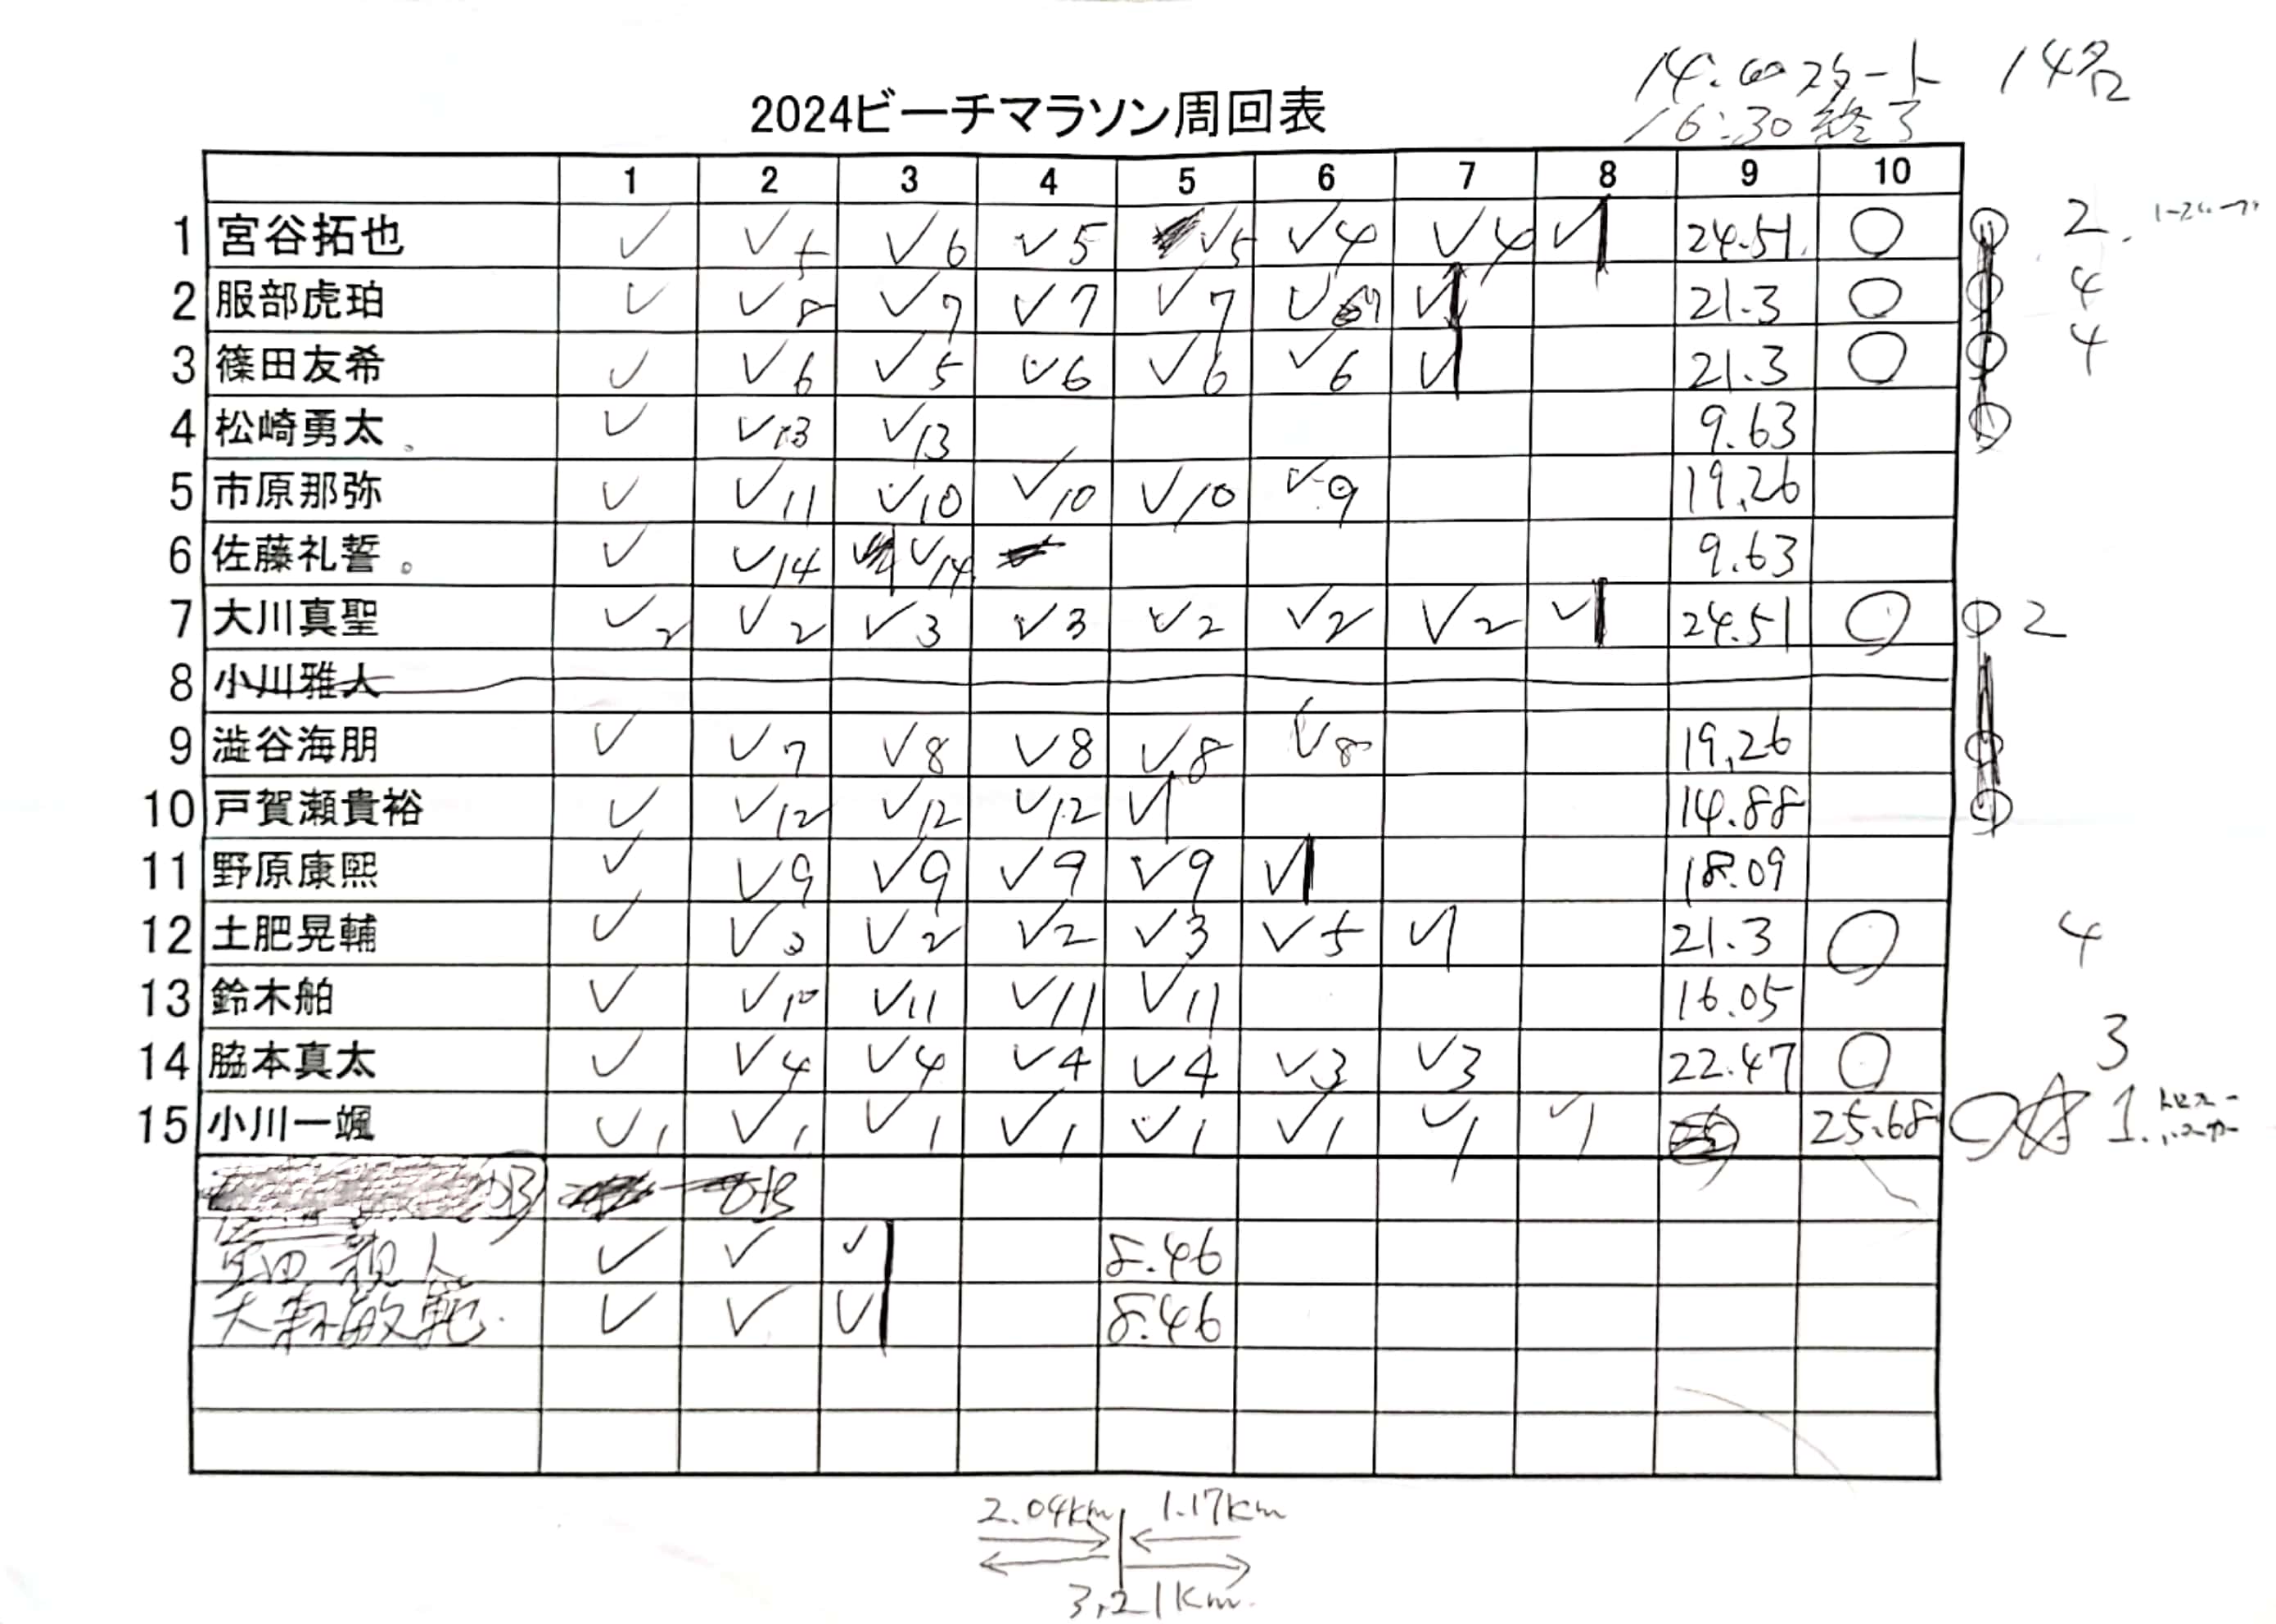 14:00スタート 14名
2024ビーチマラソン周回表
16:30終了
1 2 3 4 5 6 7 8 9 10
1 宮谷拓也 ✓ ✓5 ✓6 ✓5 ✓5 ✓4 ✓4 ✓ 24.51 ○ 2.
2 服部虎珀 ✓ ✓8 ✓7 ✓7 ✓7 ✓7 ✓ 21.3 ○ 4
3 篠田友希 ✓ ✓6 ✓5 ✓6 ✓6 ✓6 ✓ 21.3 ○ 4
4 松崎勇太 。 ✓ ✓13 ✓13 9.63
5 市原那弥 ✓ ✓11 ✓10 ✓10 ✓10 ✓9 19.26
6 佐藤礼誓 。 ✓ ✓14 ✓14 9.63
7 大川真聖 ✓2 ✓2 ✓3 ✓3 ✓2 ✓2 ✓2 ✓ 24.51 ○ ○ 2
8 小川雅人
9 澁谷海朋 ✓ ✓7 ✓8 ✓8 ✓8 ✓8 19.26
10 戸賀瀬貴裕 ✓ ✓12 ✓12 ✓12 ✓ 14.88
11 野原康熙 ✓ ✓9 ✓9 ✓9 ✓9 ✓ 18.09
12 土肥晃輔 ✓ ✓3 ✓2 ✓2 ✓3 ✓5 ✓ 21.3 ○ 4
13 鈴木舶 ✓ ✓10 ✓11 ✓11 ✓11 16.05
14 脇本真太 ✓ ✓4 ✓4 ✓4 ✓4 ✓3 ✓3 22.47 ○ 3
15 小川一颯 ✓1 ✓1 ✓1 ✓1 ✓1 ✓1 ✓1 ✓1 25.68 ○☆ 1.
✓ ✓ ✓ 8.46
大森敏範 ✓ ✓ ✓ 8.46
2.04km 1.17km
3.21km